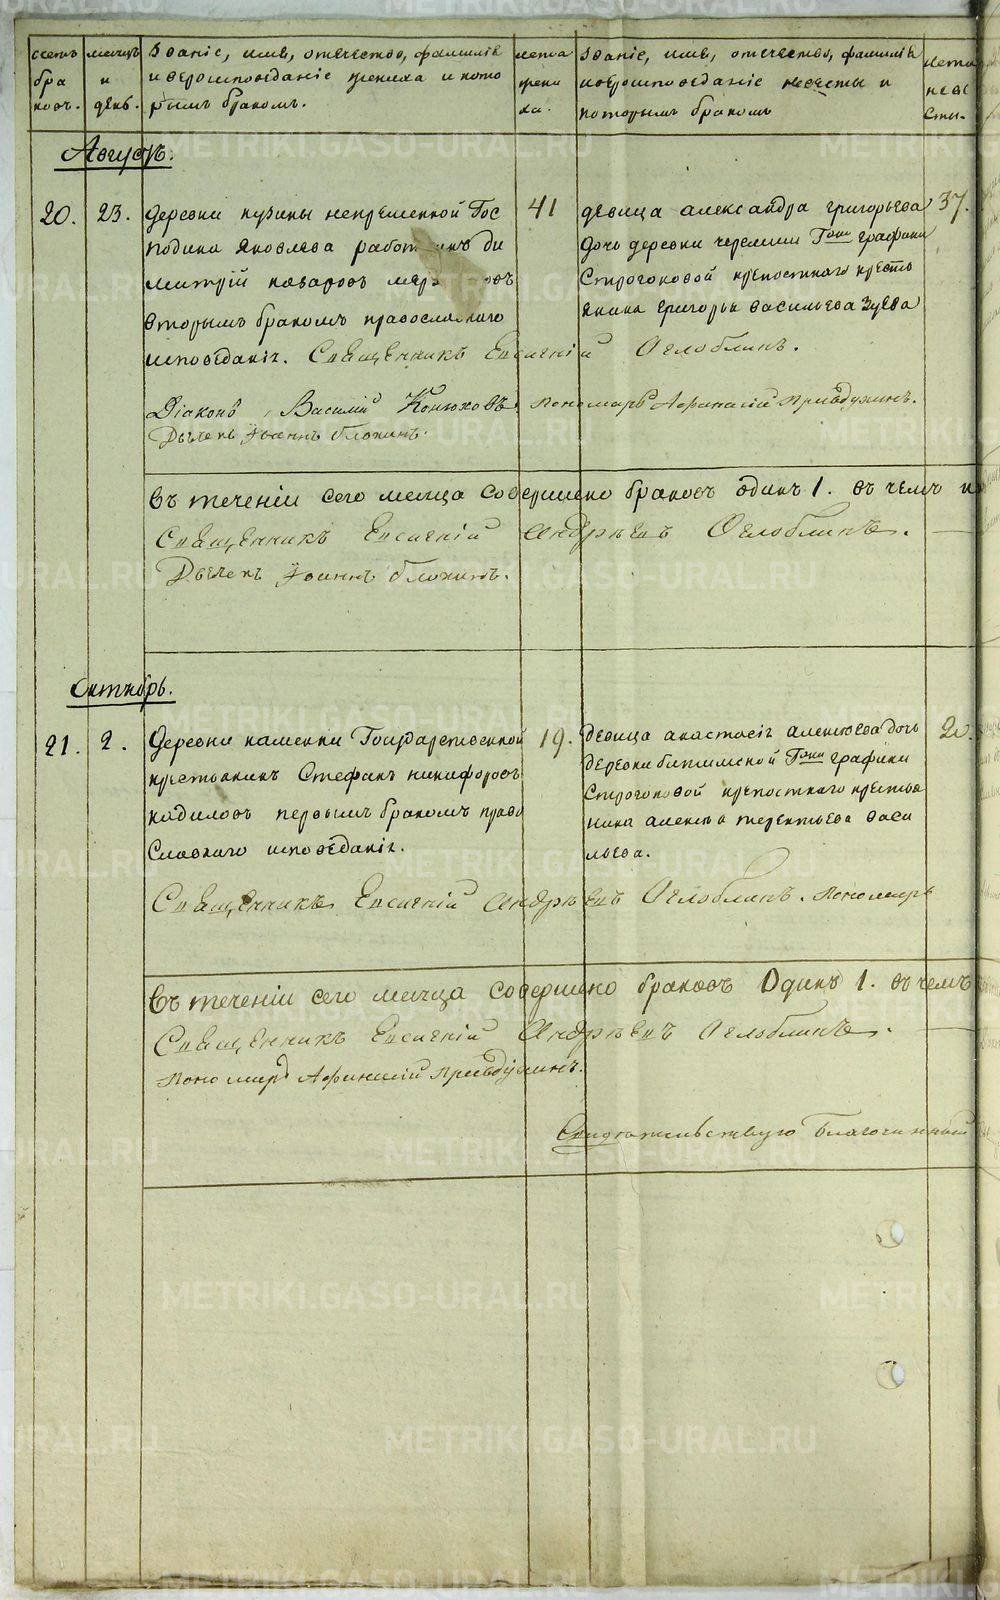 счетъ бра ковъ.
мѣсяцъ и день.
Званіе, имя, отечество, фамилія
и вѣроисповѣданіе жениха и кото
рымъ бракомъ.
лета жени ха.
Званіе, имя, отечество, фамилія
и вѣроисповѣданіе невѣсты и
которымъ бракомъ
лета неве сты.
Августъ.
20. 23.
деревни кузины непременной Гос
подина Яковлева работникъ ди
митрій назаровъ
вторымъ бракомъ православнаго
исповѣданія.
41
девица александра григорьева
дочь деревни черемши Гжи графини
Строгоновой крепостнаго кресть
янина григорья васильева Зуева
37.
Священникъ Евсигній Оглоблинъ.
Діаконъ Василій Конюховъ. пономарь Афанасій
Дьячекъ Іоаннъ блохинъ.
въ теченіи сего месяца совершено браковъ одинъ 1. въ чемъ и
Священникъ Евсигній Андреевъ Оглоблинъ.
Дьячекъ Іоаннъ блохинъ.
Октябрь.
21. 2.
деревни каменки Государственной
крестьянинъ Стефанъ никифоровъ
кадиловъ первымъ бракомъ право
славнаго исповѣданія.
19.
девица анастасія алексеева дочь
деревни битимской Гжи графини
Строгоновой крепостнаго крестья
нина алексея терентьева васи
льева.
20.
Священникъ Евсигній Андреевъ Оглоблинъ. пономарь
въ теченіи сего месяца совершено браковъ Одинъ 1. въ чемъ
Священникъ Евсигній Андреевъ Оглоблинъ.
пономарь Афанасій
Свидетельствую Благочинный
METRIKI.GASO-URAL.RU